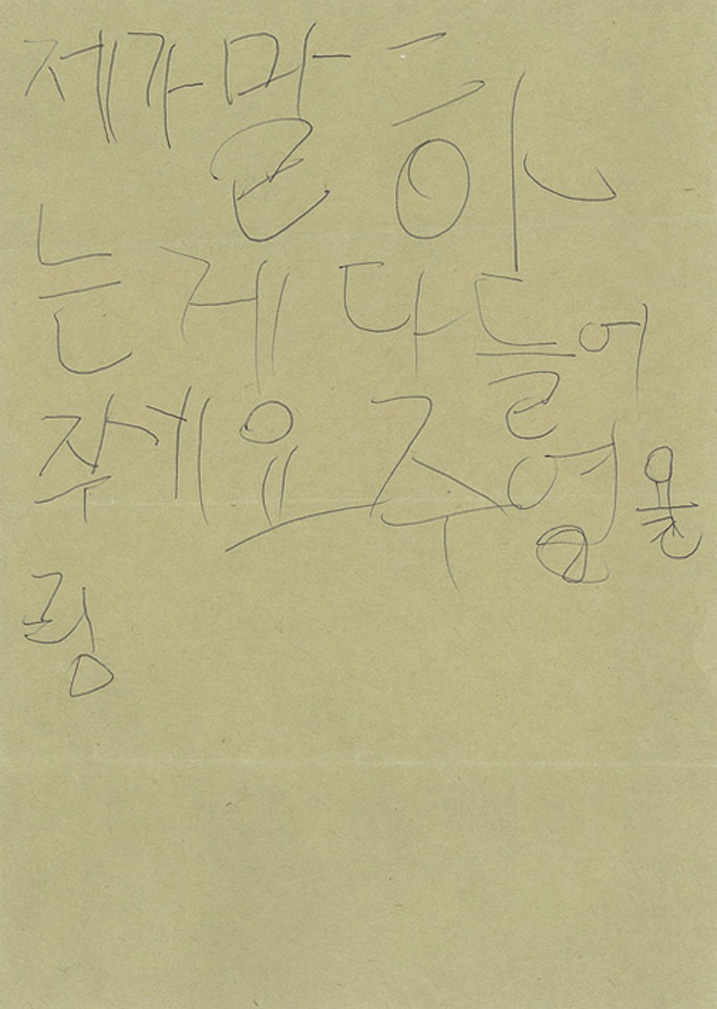 제가말 하
는게 다들어
주세요 주영을
링